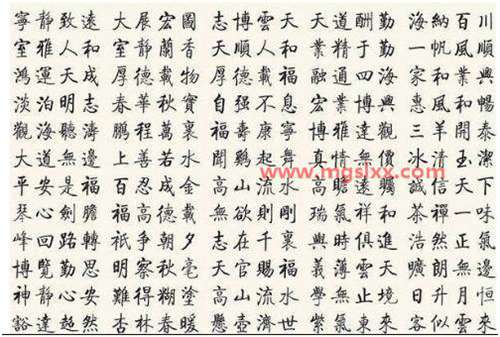 寧靜致遠 大展宏圖 志博雲天 天道酬勤 海納百川
室雅人和 室靜蘭香 大順人和 業精于勤 一帆風順
鴻運天成 厚德載物 厚德載福 融通四海 家和業興
淡泊明志 春華秋實 自强不息 宏業博興 家惠風和暢
觀海聽濤 鵬程萬裏 福壽康寧 博雅達觀 三羊開泰
大道無邊 上善若水 聞鷄起舞 真情無價 冰清玉潔
平安是福 百忍成金 高山流水 高瞻遠矚 誠信天下
琴心劍膽 福高德載 無欲則剛 瑞氣祥和 茶禪一味
峰回路轉 祇争朝夕 志在千裏 與時俱進 浩然正氣
博覽勤思 明察秋毫 天官賜福 義薄雲天 朗無邊
神靜心安 難得糊塗 高山流水 學無止境 日升月恒
豁達超然 杏林春暖 懸壺濟世 紫氣東來 客似雲來
www.mgslxx.com